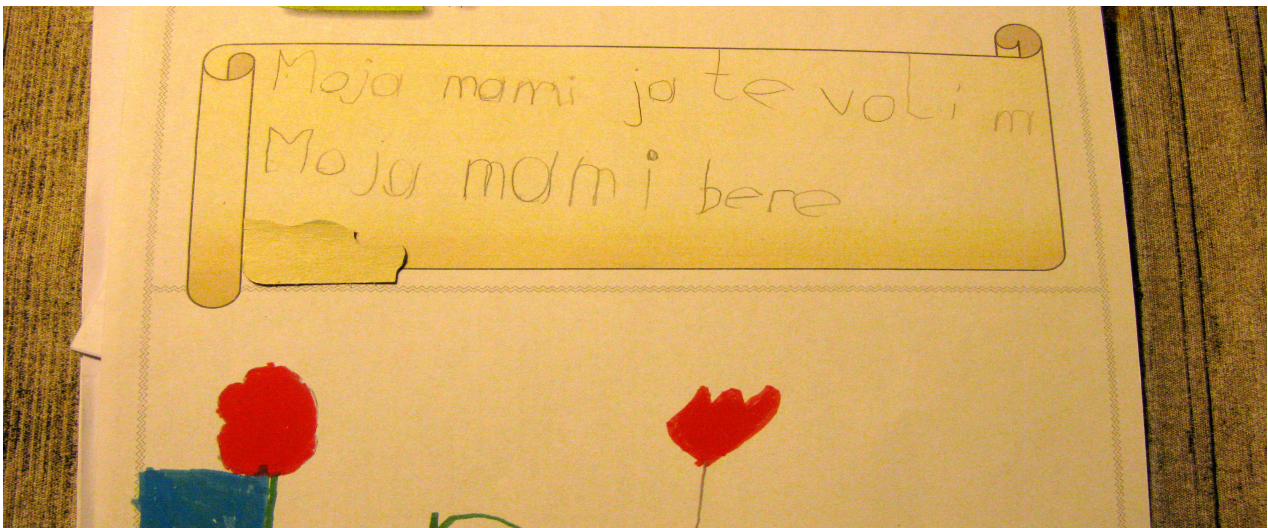 Moja mami ja te volim
Moja mami bere